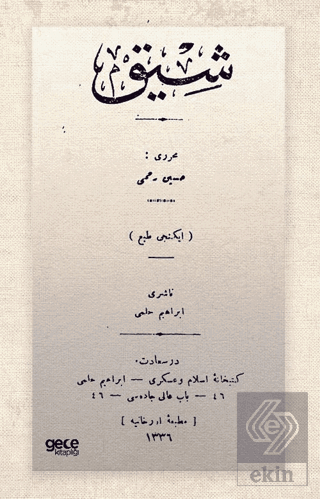 شيق
محرری :
حسين رحمی
( ايكنجی طبع )
ناشری
ابراهيم حلمی
در سعادت
كتبخانۀ اسلام و عسكری — ابراهيم حلمی
٤٦ — باب عالی جاده‌سی — ٤٦
[ مطبعۀ اورخانيه ]
١٣٣٦
gece
kitaplığı
ekin